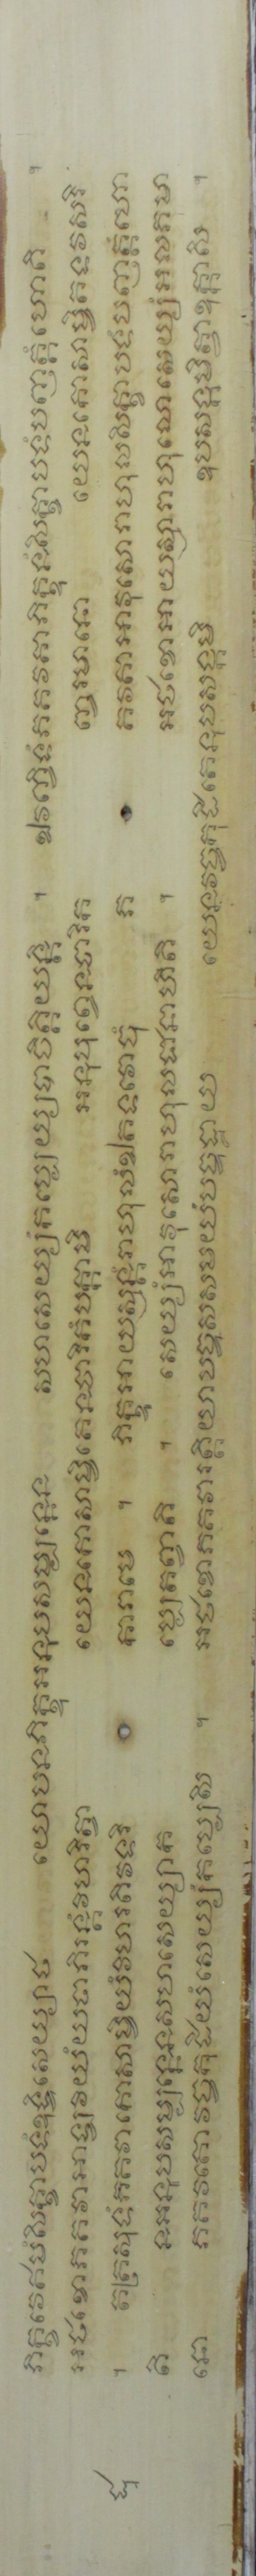 ភិក្ខវេឥមំសិក្ខាបទំឧទ្ទិសេយ្យាថ យោបនភិក្ខុអនុបសម្បន្នេន សហសេយ្យំកប្បេយ្យបាចិត្តិយន្តិ ។ ឯវញ្ចិទំភគវតាភិក្ខូនំសិក្ខាបទំបញ្ញត្តំហោតិ ។
អថខោភគវាអាឡវិយំយថាភិរន្តំវិហរិត្វា យេនកោសាម្ពិតេនចារិកំបក្កាមិ អនុបុព្វេនចារិក ញ្ចរមានោ យេនកោសាម្ពិតទវសរិ
។ តត្រសុទំភគវាកោសាម្ពិយំវិហរតិវទរិ ការាមេ ។ ភិក្ខូអាយស្មន្តំរាហុលំឯតទវោចុំ ភ ភគវតាអាវុសោរាហុលសិក្ខាបទំបញ្ញត្តំហោ
តិ នអនុបសម្បន្នេនសហសេយ្យាក ប្បេតព្វាតិ ។ សេយ្យំអាវុសោរាហុលជានាហីតិ ។ អថខោអាយស្មារាហុលោសេយ្យំអលភមា
នោ ភគវតោវច្ចកុដិយំសេយ្យំកប្បេសិ ។ អថខោភគវារត្តិយាបច្ចុសសមយំបច្ចុដ្ឋាយ យេនវច្ចកុដិតេនុបសង្កមិ ឧបសង្កមិត្វាឧក្កាសិ ។